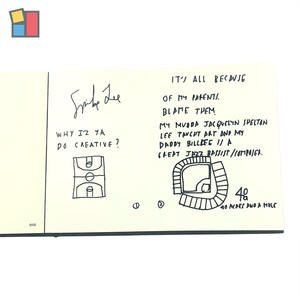 Spike Lee
WHY IZ YA
DO CREATIVE?
IT'S ALL BECAUSE
OF MY PARENTS.
BLAME THEM.
MY MUDDA JACQUELYN SHELTON
LEE TAUGHT ART AND MY
DADDY BILL LEE IS A
GREAT JAZZ BASSIST/COMPOSER.
1 2
40
40 ACRES AND A MULE